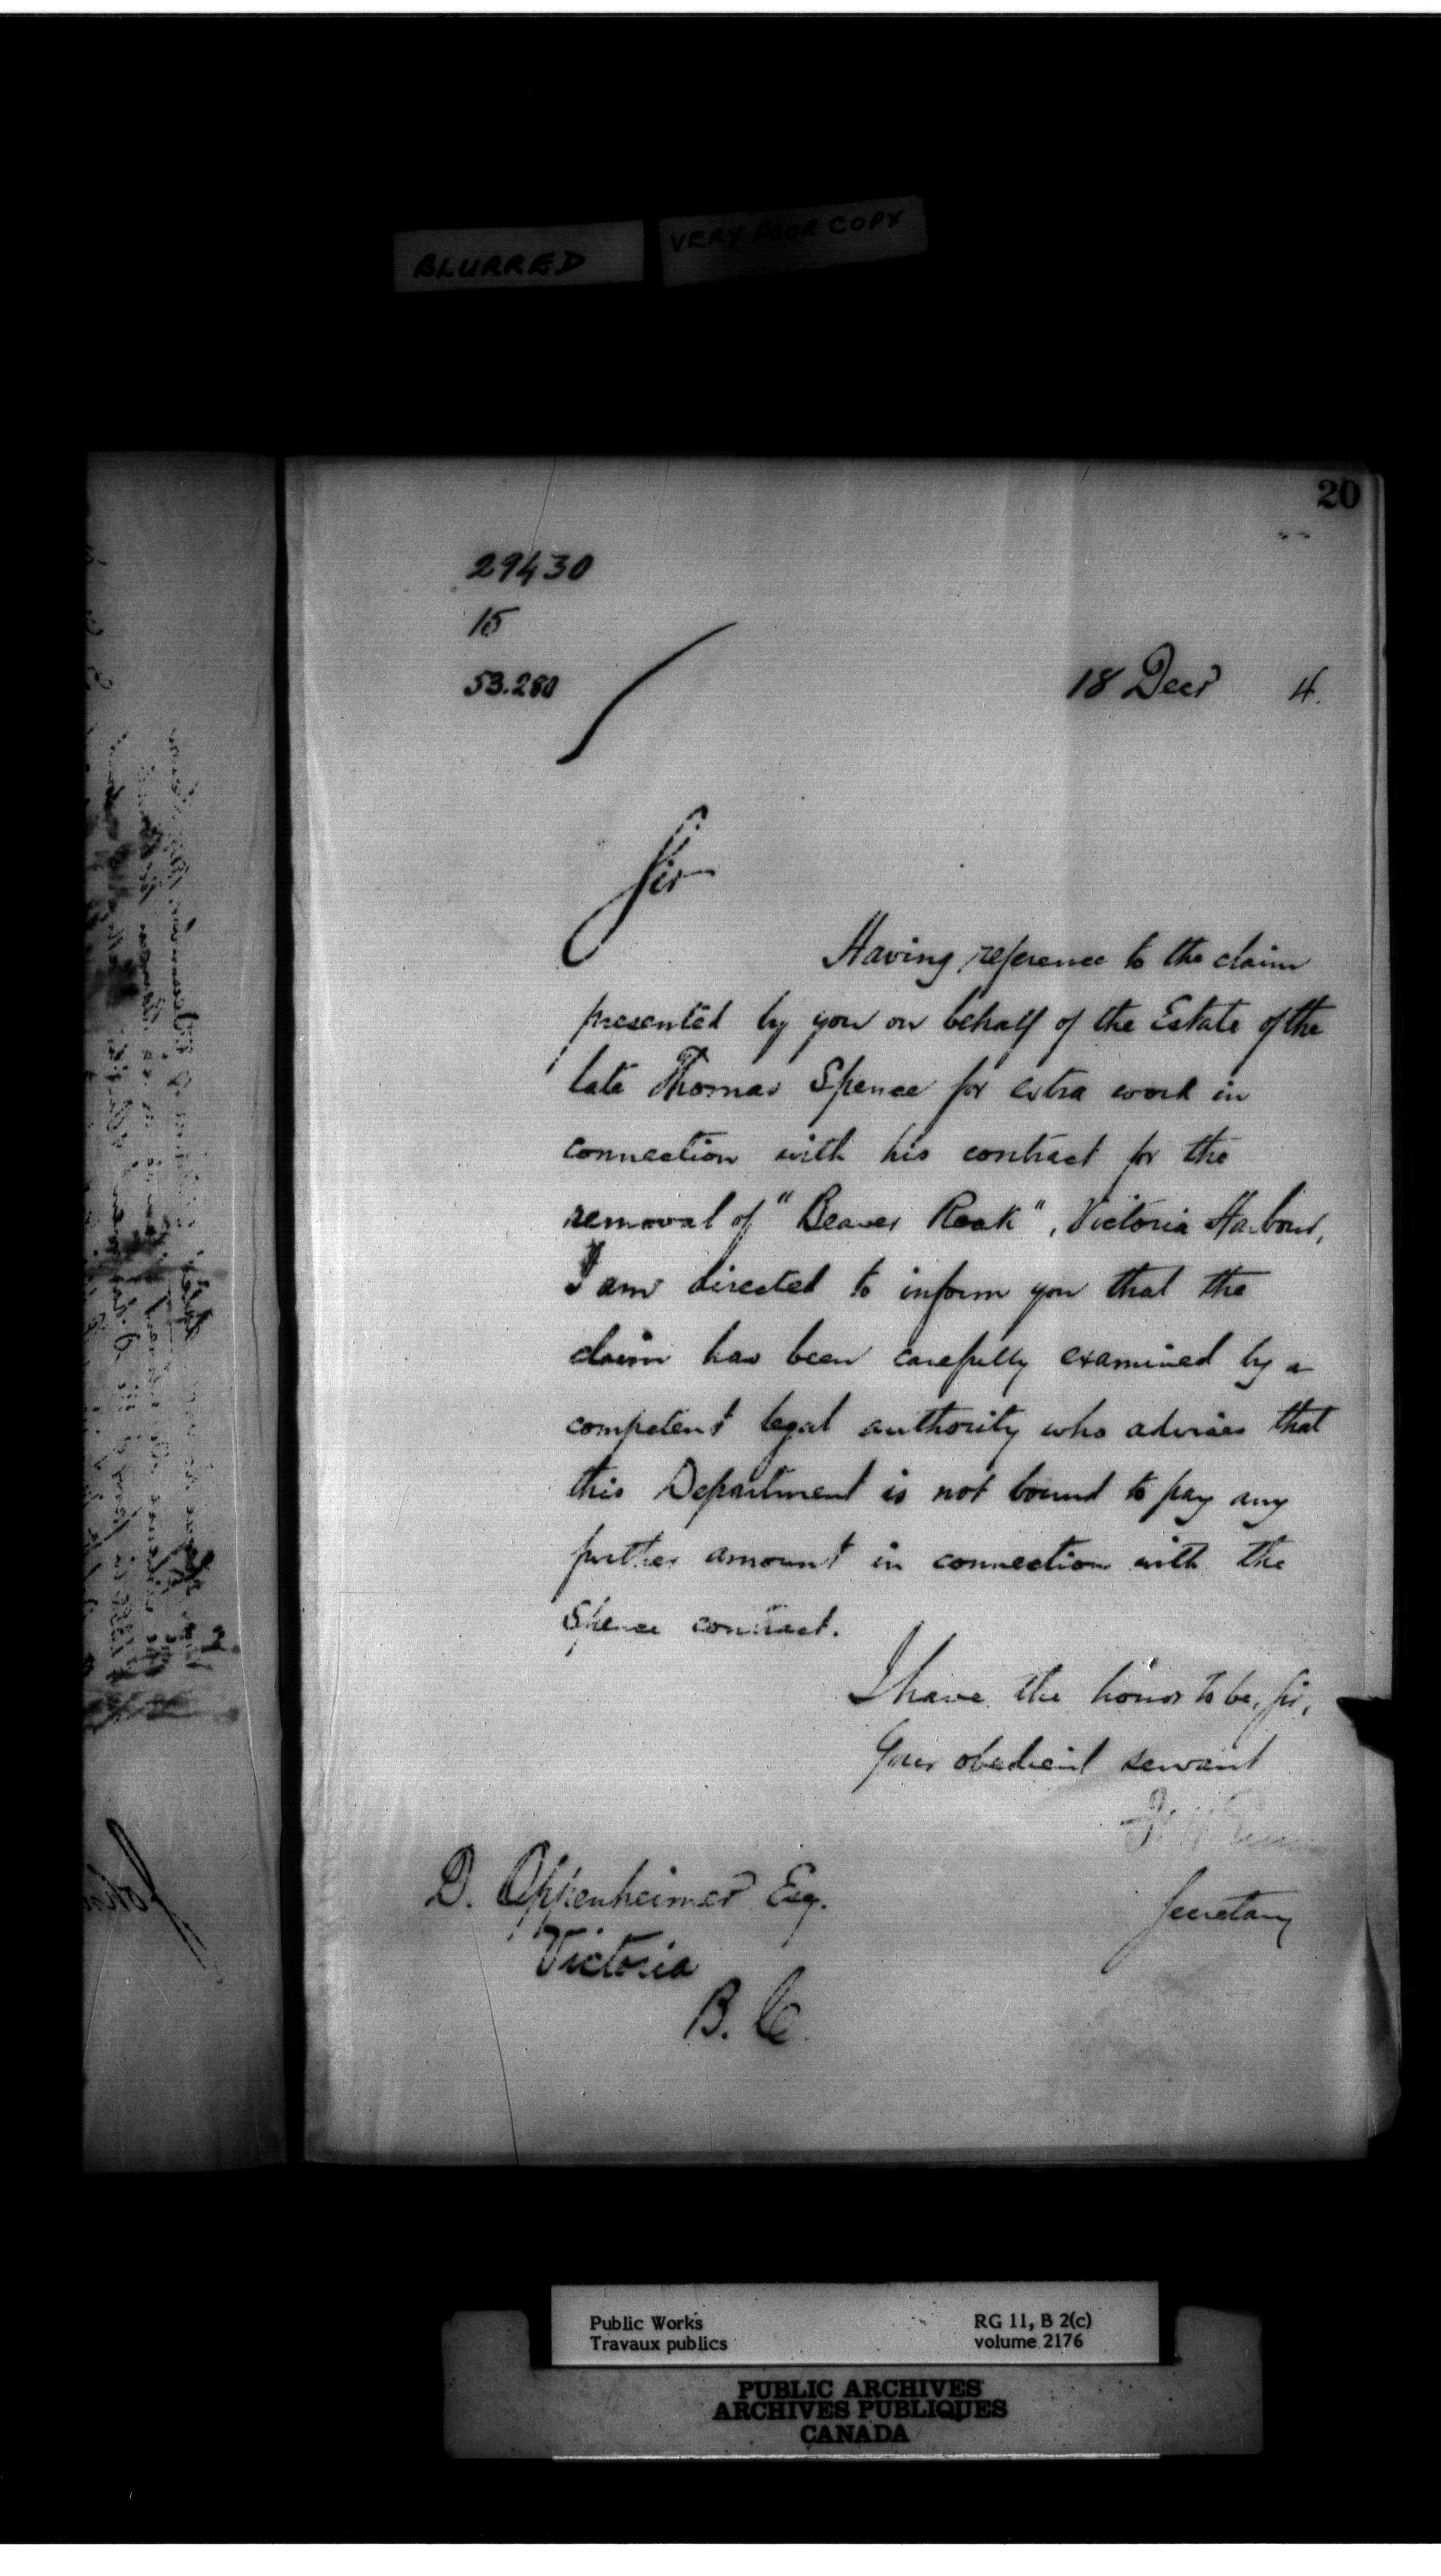 BLURRED
VERY POOR COPY
20
29430
15
53.280
18 Decr 4.
Sir
Having reference to the claim
presented by you on behalf of the Estate of the
late Thomas Spence for extra work in
connection with his contract for the
removal of "Beaver Rock", Victoria Harbour,
I am directed to inform you that the
claim has been carefully examined by a
competent legal authority who advises that
this Department is not bound to pay any
further amount in connection with the
Spence contract.
I have the honor to be, Sir,
Your obedient servant
Secretary
D. Oppenheimer Esq.
Victoria
B.C.
Public Works
Travaux publics
RG 11, B 2(c)
volume 2176
PUBLIC ARCHIVES
ARCHIVES PUBLIQUES
CANADA